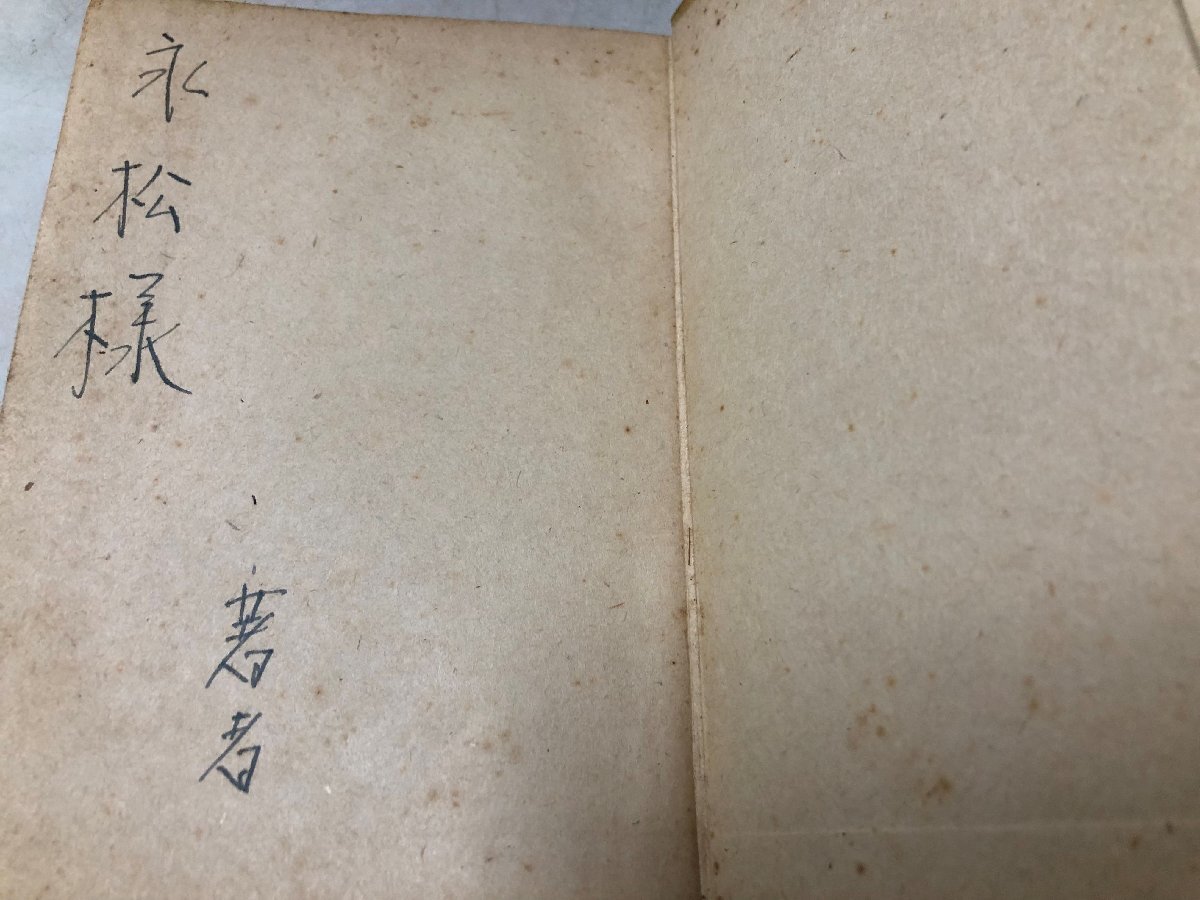 永松様
著者